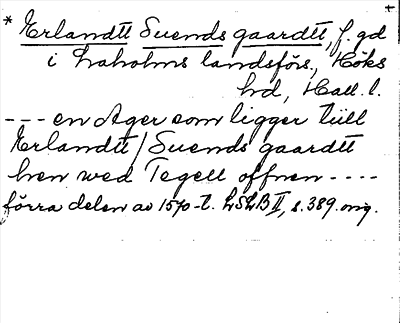 * Erlandtt Suends gaardtt, f. gd
i Laholms landsförs., Höks
hd, Hall. l.
--- en Ager som ligger tüll
Erlandtt / Suends gaardtt
hen wed Tegell offnen ----
förra delen av 1570-t. LSLB II, s. 389. orig.